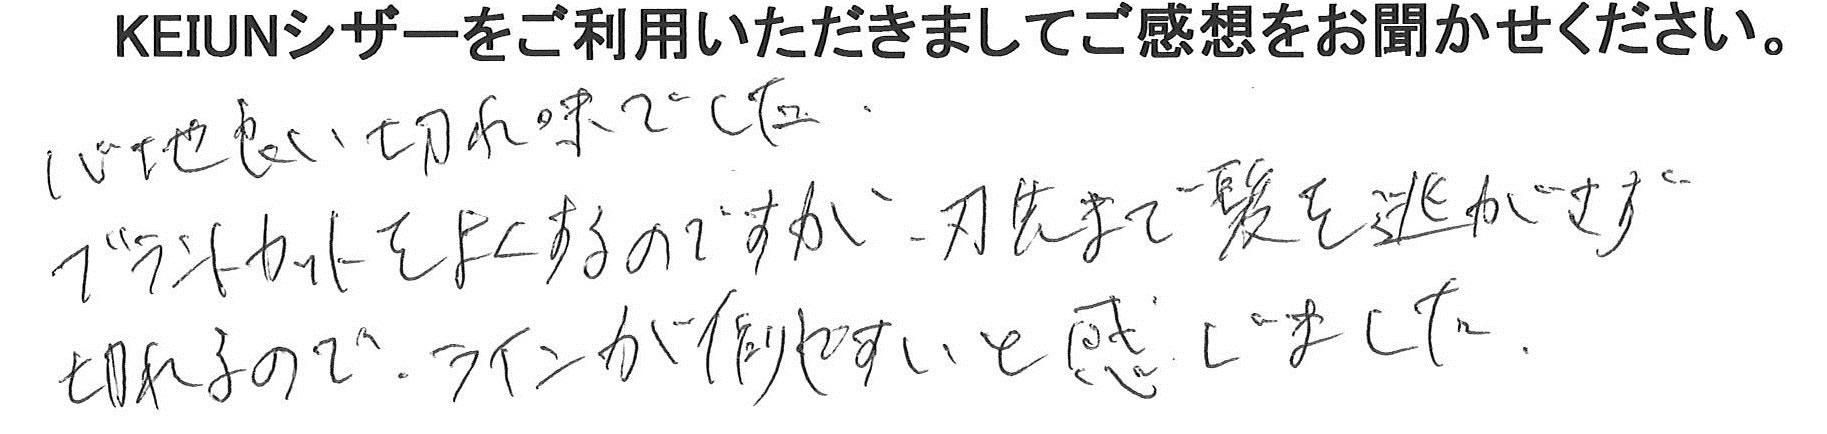 KEIUNシザーをご利用いただきましてご感想をお聞かせください。
心地良い切れ味でした.
ブラントカットをよくするのですが、刃先まで髪を逃がさず
切れるので、ラインが作りやすいと感じました.